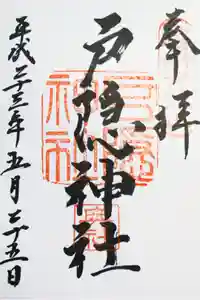 奉拝
戸隠神社
平成二十三年五月二十五日